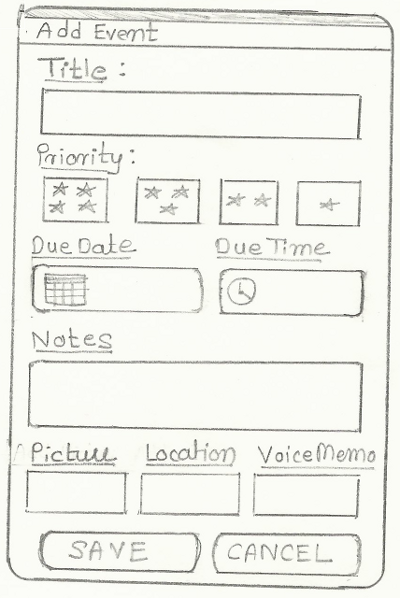 Add Event
Title :
Priority :
Due Date Due Time
Notes
Picture Location Voice Memo
SAVE CANCEL